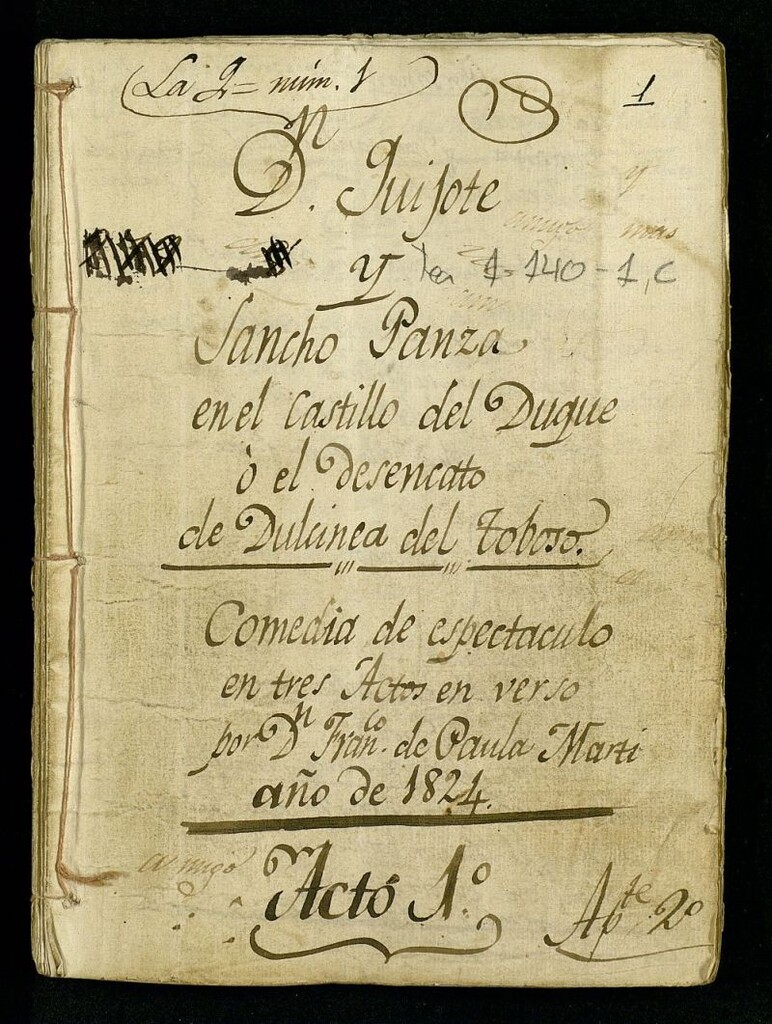 La J= núm. 1
1
D.n Quijote
y
Tea 1-140-1, C
Sancho Panza
en el Castillo del Duque
ò el Desencato
de Dulcinea del Toboso.
Comedia de espectaculo
en tres Actos en verso
por Dn Fran.co de Paula Marti
año de 1824.
amigo
Actó 1.º
Apte 2º